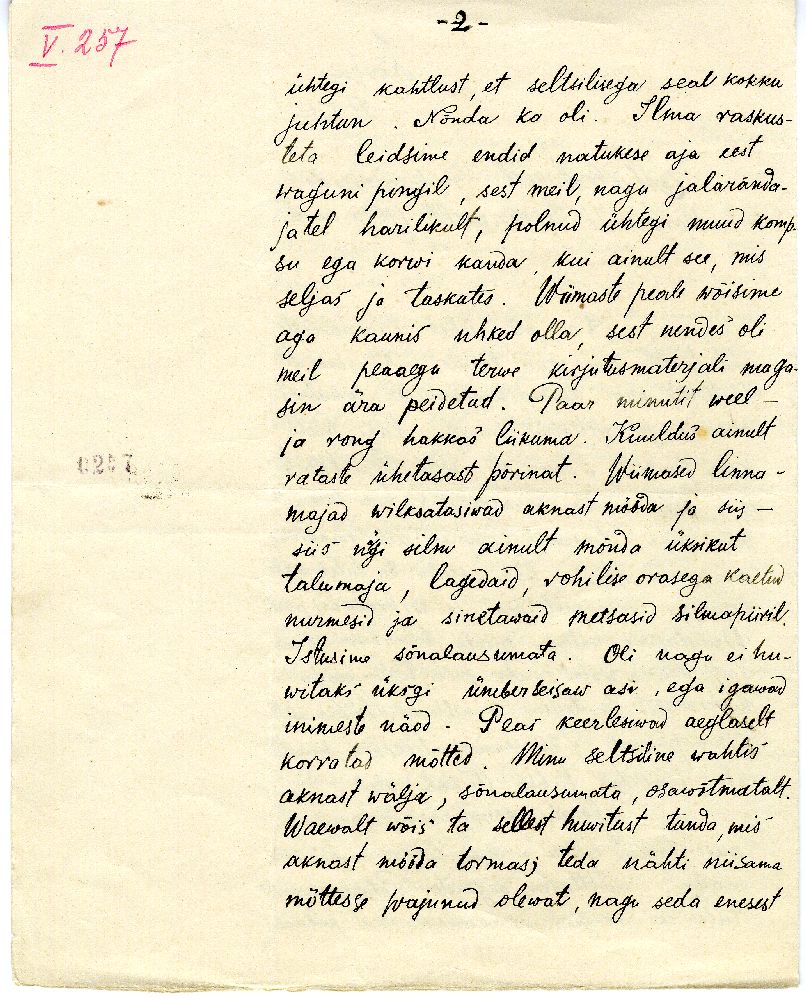 -2-
V. 257
ühtegi kahtlust, et seltsilisega seal kokku
juhtun. Nõnda ka oli. Ilma raskus-
teta leidsime endid natukese aja eest
waguni pingil, sest meil, nagu jalarända-
jatel harilikult, polnud ühtegi muud komp-
su ega korwi kanda, kui ainult see, mis
seljas ja taskutes. Wiimaste peale wõisime
aga kaunis uhked olla, sest nendes oli
meil peaaegu terwe kirjutusmaterjali maga-
sin ära peidetud. Paar minutit weel —
ja rong hakkas liikuma. Kuuldus ainult
rataste ühetasast põrinat. Wiimased linna-
majad wilksatasiwad aknast mööda ja siis —
siis nägi silm ainult mõnda üksikut
talumaja, lagedaid, rohilise orasega kaetud
nurmesid ja sinetawaid metsasid silmapiiril.
Istusime sõnalausumata. Oli nagu ei hu-
witaks üksgi ümberseisaw asi, ega igawad
inimeste näod. Peas keerlesiwad aeglaselt
korratad mõtted. Minu seltsiline wahtis
aknast wälja, sõnalausumata, osawõtmatalt.
Waewalt wõis ta sellest huwitust tunda, mis
aknast mööda tormas; teda nähti niisama
mõttesse wajunud olewat, nagu seda enesest
0257